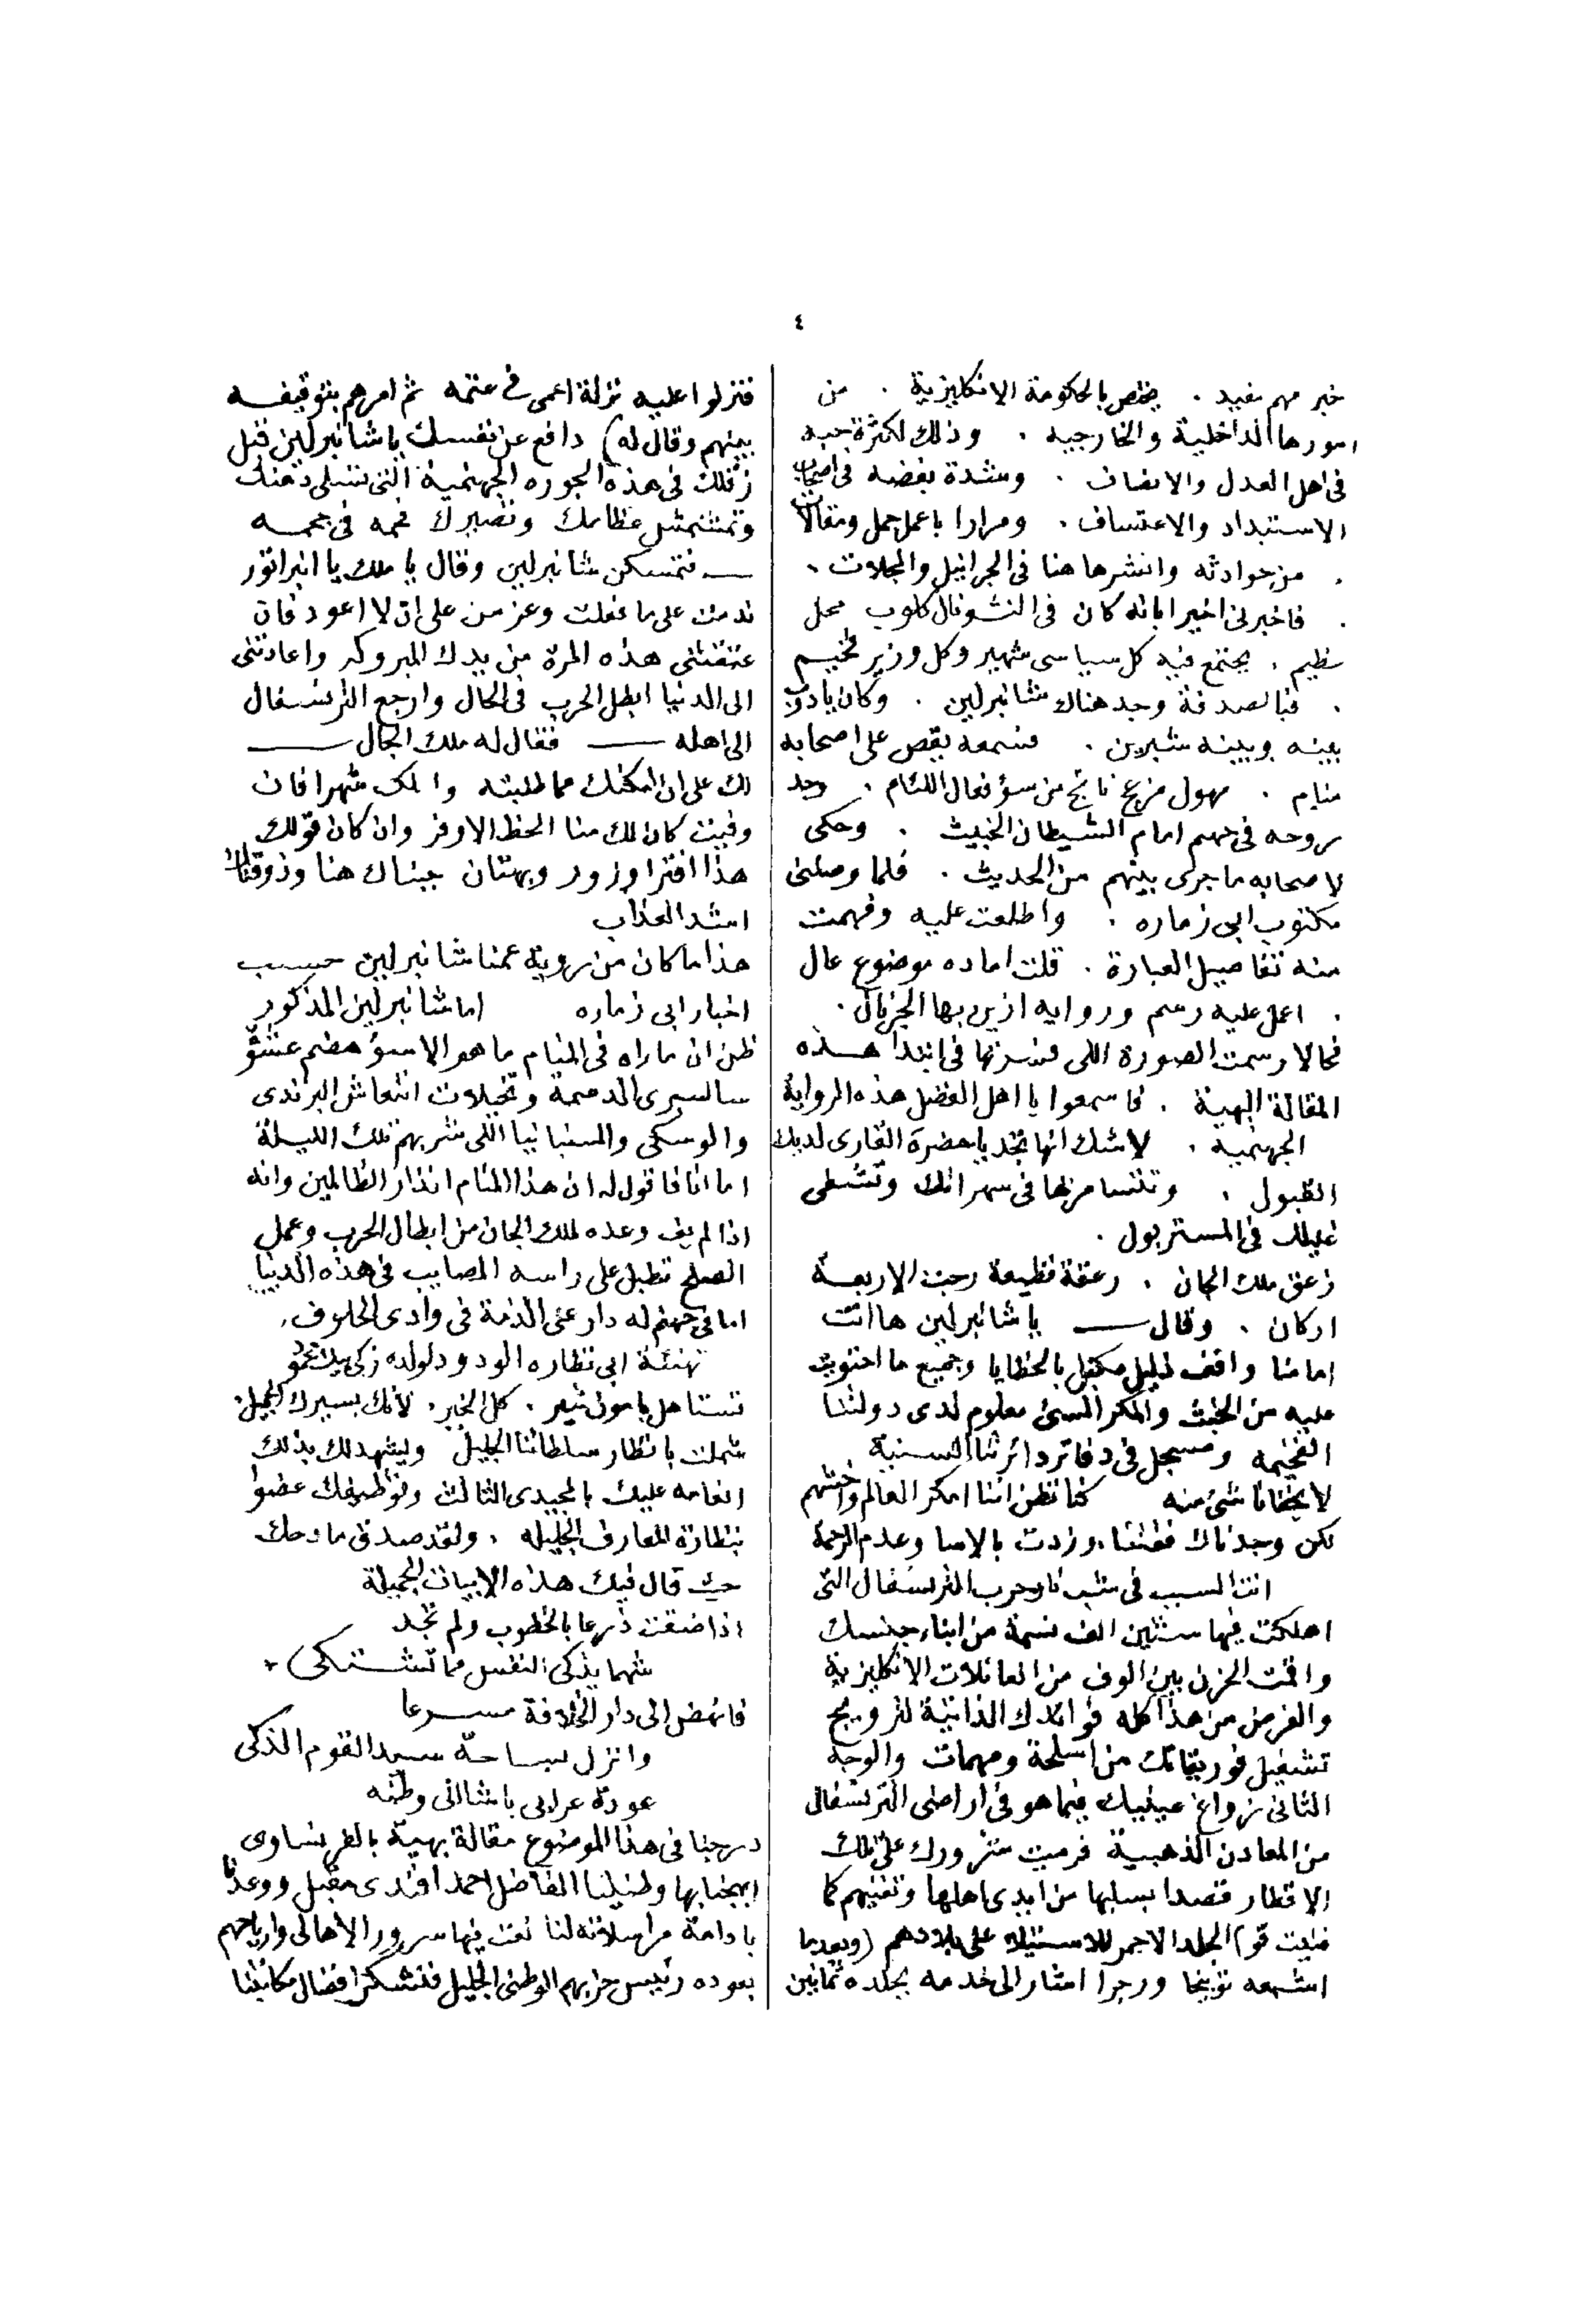 ٤
خبر مهم مفيد . يختص بالحكومة الانكليزية . من
امورها الداخلية والخارجيه . وذلك لكثرة حبه
فى اهل العدل والانصاف . وشدة بغضه فى اصحاب
الاستبداد والاعتساف . ومرارا باعمل جمل ومقالات
. من حوادثه وانشرها هنا فى الجرانيل والمجلات .
. فاخبرنى اخيرا بانه كان فى النشونال كلوب محل
عظيم . يجتمع فيه كل سياسى شهير وكل وزير فخيم
. فبالصدفة وجد هناك شانبرلين . وكان يادوب
بينه وبينه شبرين . فسمعه يقص على اصحابه
منام . مهول مزعج ناتج من سؤ فعال اللئام . وجد
روحه فى جهنم امام الشيطان الخبيث . وحكى
لاصحابه ما جرى بينهم من الحديث . فلما وصلنى
مكتوب ابى زماره . واطلعت عليه وفهمت
منه تفاصيل العبارة . قلت اما ده موضوع عال
. اعمل عليه رسم وروايه ازين بها الجرنال .
فحالا رسمت الصورة اللى فى ابتدا هذه
المقالة البهية . فاسمعوا يا اهل الفضل هذه الرواية
الجهنمية . لاشك انها تجد يا حضرة القارى لديك
القبول . وتتسامر بها فى سهراتك وتشفى
غليلك فى المستر بول .
زعق ملك الجان . زعقة فظيعة رجت الاربعة
اركان . وقال ــ يا شانبرلين ها انت
امامنا واقف ذليل مكبل بالخطايا وجميع ما احتويت
عليه من الخبث والمكر السئ معلوم لدى دولتنا
الفخيمه ومسجل فى دفاتر دائرتنا السنية
لا يخفانا شئ منه كنا نظن اننا امكر العالم واخبثهم
لكن وجدناك فقتنا وزدت بالاسا وعدم الرحمة
انت السبب فى شب نار حرب الترنسفال التى
اهلكت فيها ستين الف نسمة من ابناء جنسك
واقمت الحزن بين الوف من العائلات الانكليزية
والغرض من هذا كله فوائدك الذاتية لترويج
تشغيل فوريقاتك من اسلحة ومهمات والوجه
الثانى زواغ عينيك فيما هو فى اراضى الترنسفال
من المعادن الذهبية فرميت شرورك على تلك
الاقطار قصدا بسلبها من ايدى اهلها وتفنيهم كما
فنيت قوم الجلد الاحمر للاستيلاء على بلادهم (وبعدما
اشبعه توبيخا وزجرا اشار الى خدمه بجلده ثمانين
فنزلوا عليه نزلة اعمى فى عتمه ثم امرهم بتوقيفه
بينهم وقال له) دافع عن نفسك يا شانبرلين قبل
زقلك فى هذه الجوره الجهنمية التى تسلى دهنك
وتمشمش عظامك وتصيرك فحمه فى جحمه
ــ فتمسكن شانبرلين وقال يا ملك يا انبراتور
ندمت على ما فعلت وعزمن على ان لا اعود فان
عتقتنى هذه المرة من يدك المبروكه واعادتنى
الى الدنيا ابطل الحرب فى الحال وارجع الترنسفال
الى اهله ــ فقال له ملك الجان ــ
لك على ان امكنك مما طلبته وامهلك شهرا فان
وفيت كان لك منا الحظ الاوفر وان كان قولك
هذا افترا وزور وبهتان جبناك هنا وذوقناك
اشد العذاب
هذا ما كان من روية عمنا شانبرلين حسب
اخبار ابى زماره اما شانبرلين المذكور
ظن ان ما راه فى المنام ما هو الا سؤ هضم عشؤ
الدسمة وتخيلات انتعاش البرندى
والوسكى والشنبانيا اللى شربهم تلك الليلة
اما انا فاقول له ان هذا المنام انذار الظالمين وانه
اذا لم يف وعده لملك الجان من ابطال الحرب وعمل
الصلح تطبل على راسه المصايب فى هذه الدنيا
اما فى جهنم له دار على الذمة فى وادى الحلوف .
تهنئة ابى نظاره الودود لولده زكى بيك
تستاهل يا مون شير . كل الخير . لانك بسيرك الجميل
شملت بانظار سلطاننا الجليل ويشهد لك بذلك
انعامه عليك بالمجيدى الثالث وتوظيفك عضوا
بنظارة المعارف الجليله . ولقد صدق مادحك
حيث قال فيك هذه الابيات الجميلة
اذا ضقت ذرعا بالخطوب ولم تجد
شهما يذكى النفس مما تشتكى
فانهض الى دار الخلافة مسرعا
وانزل بساحة سيد القوم الذكى
عودة عرابى باشا الى وطنه
درجنا فى هذا الموضوع مقالة بهية بالفرنساوى
اتحفنا بها وطنينا الفاضل احمد افندى مقبل ووعدنا
بادامة مراسلاته لنا نعت فيها سرور الاهالى وارتياحهم
بعوده رئيس حزبهم الوطنى الجليل فنشكر افضال مكاتبنا